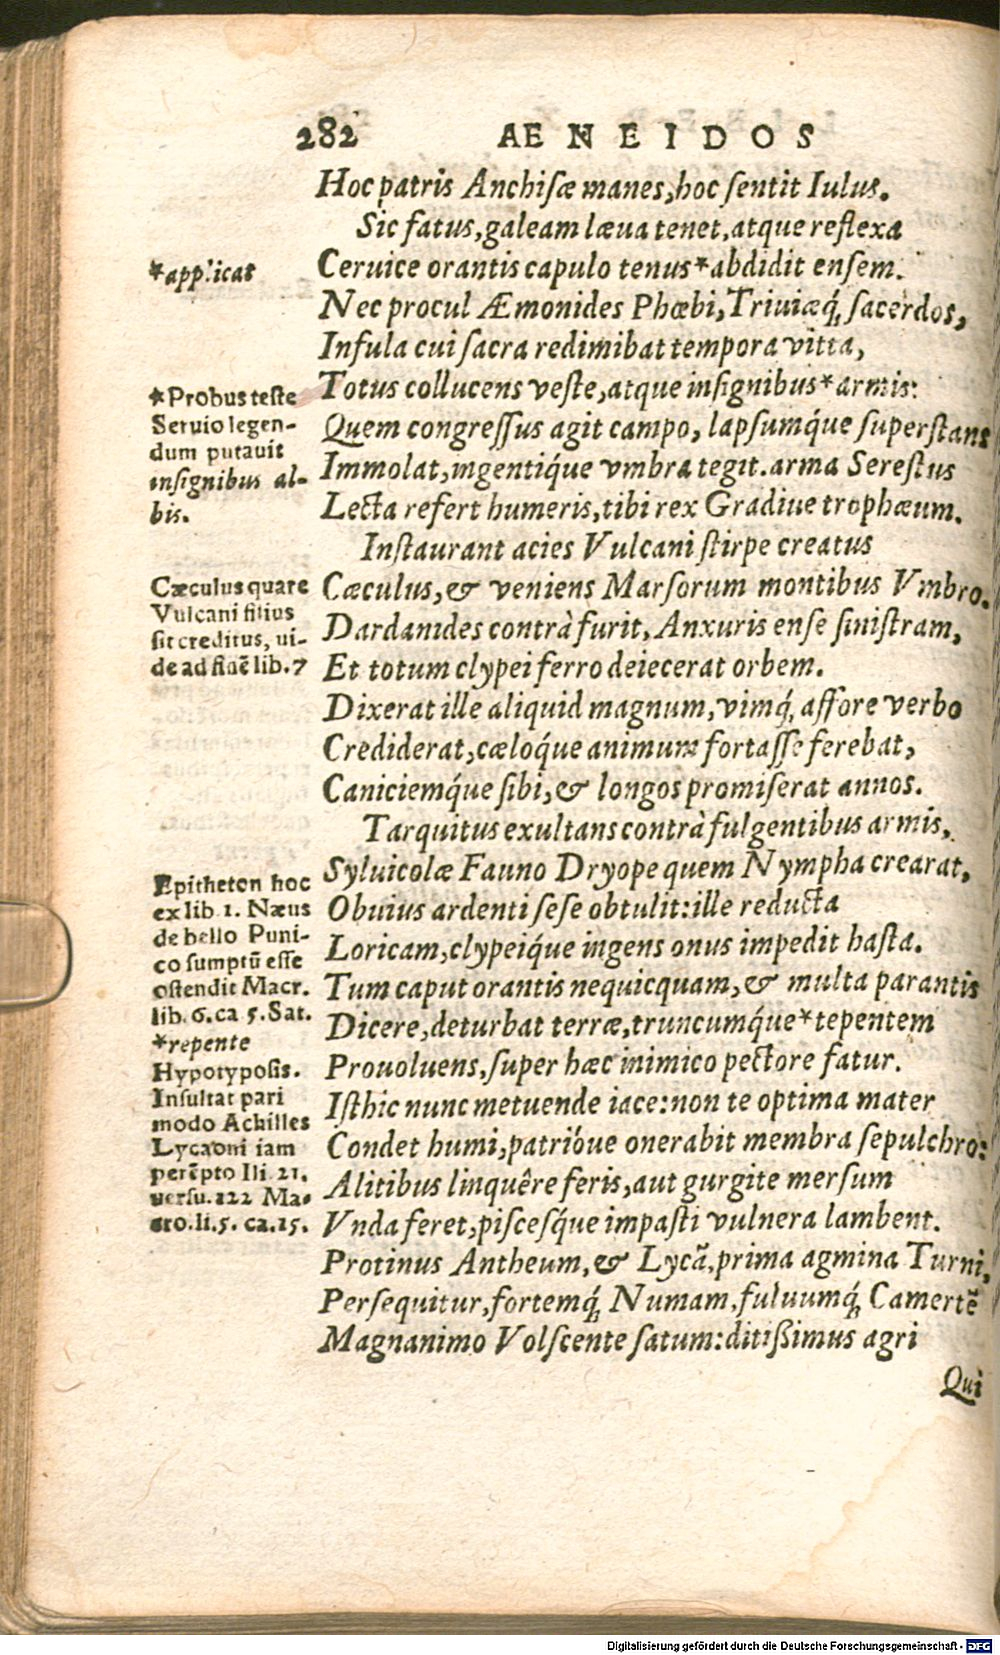 282 AENEIDOS
Hoc patris Anchisæ manes, hoc sentit Iulus.
Sic fatus, galeam læua tenet, atque reflexa
*applicat
Ceruice orantis capulo tenus *abdidit ensem.
Nec procul Æmonides Phœbi, Triuiæq́; sacerdos,
Infula cui sacra redimibat tempora vitta,
Totus collucens veste, atque insignibus *armis:
Quem congressus agit campo, lapsumq́ue superstans
Immolat, ingentiq́ue vmbra tegit. arma Serestus
Lecta refert humeris, tibi rex Gradiue trophæum.
*Probus teste
Seruio legen-
dum putauit
insignibus al-
bis.
Instaurant acies Vulcani stirpe creatus
Cæculus, & veniens Marsorum montibus Vmbro.
Dardanides contrà furit, Anxuris ense sinistram,
Et totum clypei ferro deiecerat orbem.
Cæculus quare
Vulcani filius
sit creditus, ui-
de ad finē lib. 7
Dixerat ille aliquid magnum, vimq́; affore verbo
Crediderat, cæloq́ue animum fortasse ferebat,
Caniciemq́ue sibi, & longos promiserat annos.
Tarquitus exultans contrà fulgentibus armis,
Syluicolæ Fauno Dryope quem Nympha crearat,
Obuius ardenti sese obtulit: ille reducta
Loricam, clypeiq́ue ingens onus impedit hasta.
Tum caput orantis nequicquam, & multa parantis
Dicere, deturbat terræ, truncumq́ue *tepentem
Prouoluens, super hæc inimico pectore fatur.
Epitheton hoc
ex lib 1. Næus
de bello Puni-
co sumptū esse
ostendit Macr.
lib. 6. ca 5. Sat.
*repente
Hypotyposis.
Insultat pari
modo Achilles
Lycaoni iam
perēpto Ili. 21.
uersu. 122 Ma-
cro. li. 5. ca. 15.
Isthic nunc metuende iace: non te optima mater
Condet humi, patrióue onerabit membra sepulchro:
Alitibus linquêre feris, aut gurgite mersum
Vnda feret, piscesq́ue impasti vulnera lambent.
Protinus Antheum, & Lycā, prima agmina Turni,
Persequitur, fortemq́; Numam, fuluumq́; Camertē
Magnanimo Volscente satum: ditissimus agri
Qui
Digitalisierung gefördert durch die Deutsche Forschungsgemeinschaft - DFG